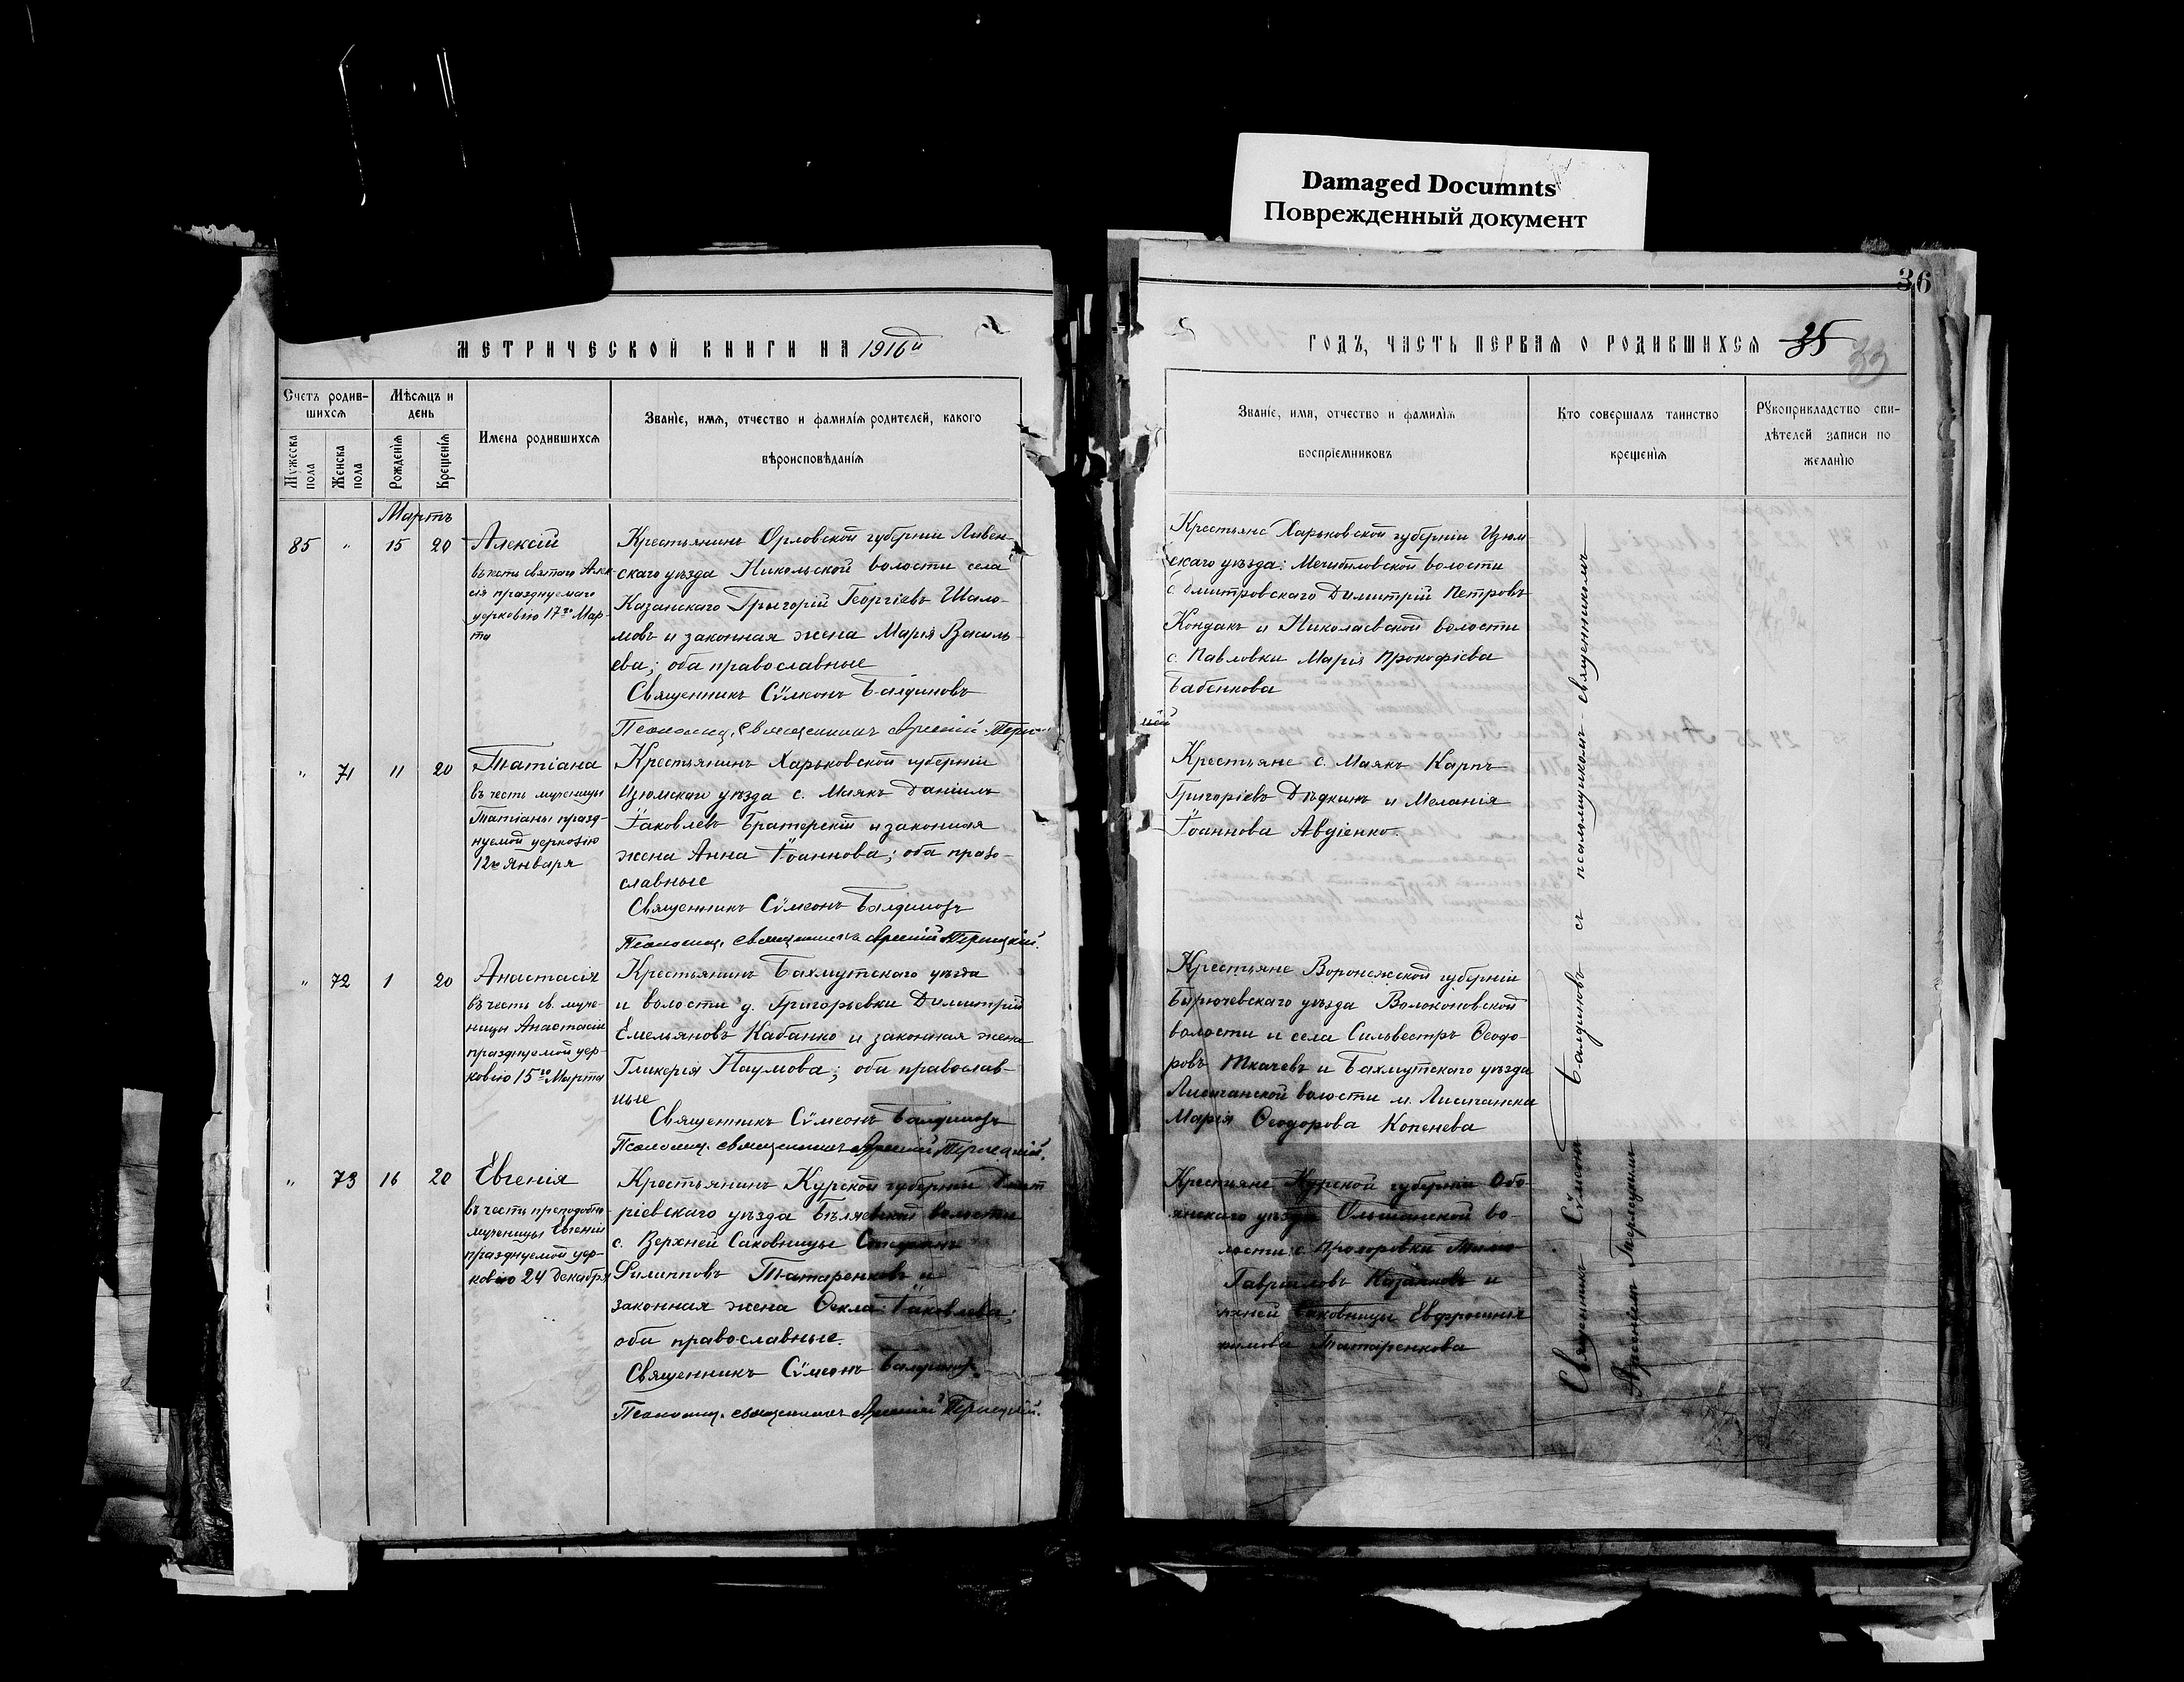 Damaged Documnts
Поврежденный документ
36
МЕТРИЧЕСКОЙ КНИГИ НА 1916й
Счетъ родив-
шихся
Мѣсяцъ и
день
Мужеска
пола
Женска
пола
Рожденія
Крещенія
Имена родившихся
Званіе, имя, отчество и фамилія родителей, какого
вѣроисповѣданія
Мартъ
85 " 15 20
Алексій
въ честь святаго Алек-
сія празднуемаго
церковію 17го Мар-
та
Крестьянинъ Орловской губерніи Ливен-
скаго уѣзда Никольской волости села
Казанскаго Григорій Георгіевъ Шало-
мовъ и законная жена Марія Василь-
ева; оба православные
Священникъ Сѵмеонъ Балдиновъ
" 71 11 20
Татіана
въ честь мученицы
Татіаны празд-
нуемой церковію
12го Января
Крестьянинъ Харьковской губерніи
Изюмскаго уѣзда с. Маякъ Даніилъ
Іаковлевъ Братерскій и законная
жена Анна Іоаннова; оба право-
славные
Священникъ Сѵмеонъ Балдиновъ
" 72 1 20
Анастасія
въ честь св. муче-
ницы Анастасіи
празднуемой цер-
ковію 15го Марта
Крестьянинъ Бахмутскаго уѣзда
и волости д. Григорьевки Димитрій
Емельяновъ Кабанко и законная жена
Гликерія Наумова; оба православ-
ные
Священникъ Сѵмеонъ Балдиновъ
" 73 16 20
Евгенія
въ честь преподобно-
мученицы Евгеніи
празднуемой цер-
ковію 24 декабря
Крестьянинъ Курской губерніи
ріевскаго уѣзда волости
с. Верхней Саковницы
Филипповъ Татаренковъ и
законная жена Ѳекла Іаковлева;
оба православные.
Священникъ Сѵмеонъ Балдиновъ
ГОДЪ, ЧАСТЬ ПЕРВАЯ О РОДИВШИХСЯ 35
33
Званіе, имя, отчество и фамилія
воспріемниковъ
Кто совершалъ таинство
крещенія
Рукоприкладство сви-
дѣтелей записи по
желанію
Крестьяне Харьковской губерніи Изюм-
скаго уѣзда: Мечибиловской волости
с. Дмитровскаго Димитрій Петровъ
Кондакъ и Николаевской волости
с. Павловки Марія Прокофіева
Бабенкова
Крестьяне с. Маякъ Карпъ
Григоріевъ Дѣдкинъ и Меланія
Іоаннова Авдіенко.
Крестьяне Воронежской губерніи
Бирючевскаго уѣзда Волоконовской
волости и села Сильвестръ Ѳеодо-
ровъ Ткачевъ и Бахмутскаго уѣзда
Лисичанской волости м. Лисичанска
Марія Ѳеодорова Копенева
Крестьяне Курской губерніи Обо-
янскаго уѣзда Ольшанской во-
лости с. Прохоровки
Гавріиловъ Казанковъ и
Саковницы Евфросинія
Татаренкова
Священникъ Сѵмеонъ Балдиновъ съ псаломщикомъ священникомъ
Арсеніемъ